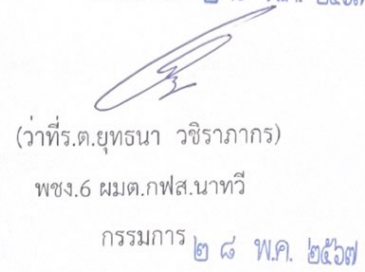 ๒ ๘ พ.ค. ๒๕๖๗
(ว่าที่ร.ต.ยุทธนา วชิราภากร)
พชง.6 ผมต.กฟส.นาทวี
กรรมการ ๒ ๘ พ.ค. ๒๕๖๗